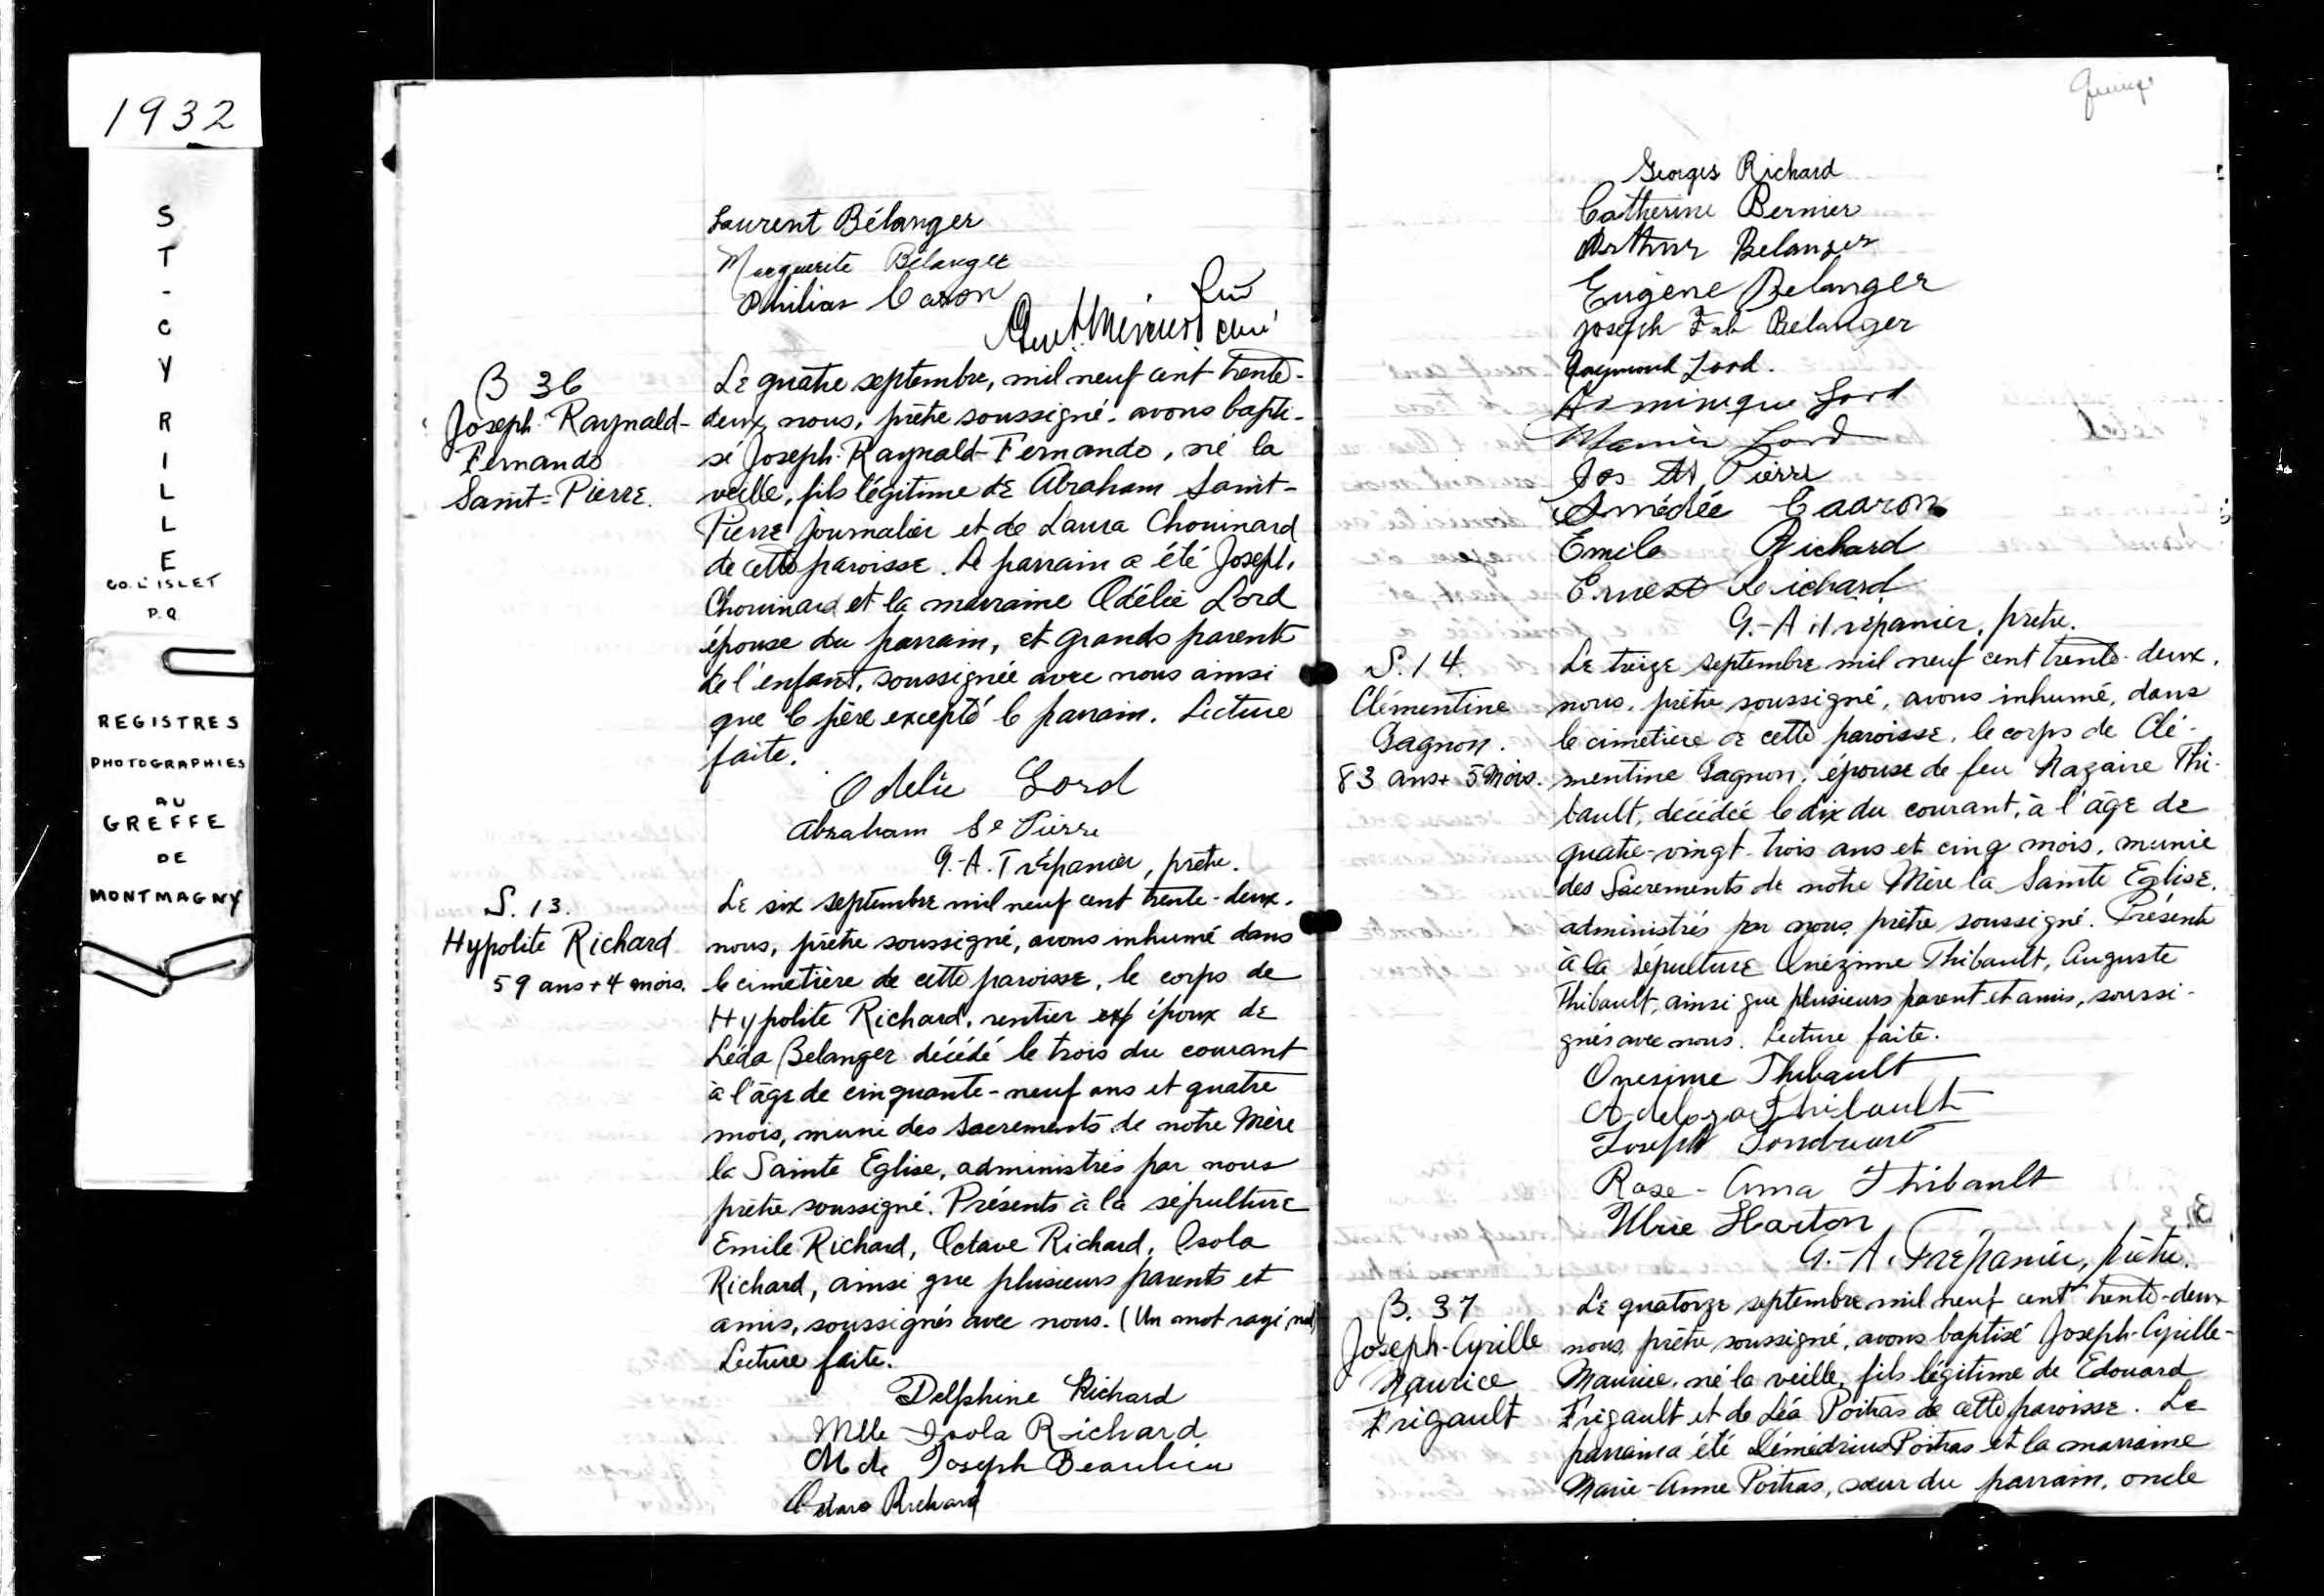 1932
ST-CYRILLE
CO. L'ISLET
P.Q.
REGISTRES
PHOTOGRAPHIES
AU
GREFFE
DE
MONTMAGNY
Laurent Bélanger
Marguerite Bélanger
Philias Caron
curé
B 36
Joseph-Raynald-
Fernando
Saint-Pierre.
Le quatre septembre, mil neuf cent trente-
deux, nous, prêtre soussigné, avons bapti-
sé Joseph-Raynald-Fernando, né la
veille, fils légitime de Abraham Saint-
Pierre journalier et de Laura Chouinard
de cette paroisse. Le parrain a été Joseph
Chouinard et la marraine Odélie Lord
épouse du parrain, et grands parents
de l'enfant, soussignée avec nous ainsi
que le père excepté le parrain. Lecture
faite.
Odelie Lord
Abraham St Pierre
G.-A. Trépanier, prêtre.
S. 13.
Hypolite Richard
59 ans + 4 mois.
Le six septembre mil neuf cent trente-deux,
nous, prêtre soussigné, avons inhumé dans
le cimetière de cette paroisse, le corps de
Hypolite Richard, rentier époux de
Léda Belanger décédé le trois du courant
à l'âge de cinquante-neuf ans et quatre
mois, muni des sacrements de notre Mère
la Sainte Eglise, administrés par nous
prêtre soussigné. Présents à la sépulture
Emile Richard, Octave Richard, Osola
Richard, ainsi que plusieurs parents et
amis, soussignés avec nous. (Un mot rayé, nul)
Lecture faite.
Delphine Richard
Mlle Isola Richard
Mde Joseph Beaulieu
Octave Richard
Georges Richard
Catherine Bernier
Arthur Belanger
Eugène Belanger
Joseph Fab Belanger
Raymond Lord.
Dominique Lord
Lord
Jos St Pierre
Amédée Caaron
Emile Richard
Ernest Richard
G.-A. Trépanier, prêtre.
S. 14.
Clémentine
Gagnon.
83 ans + 5 Mois.
Le treize septembre mil neuf cent trente-deux,
nous, prêtre soussigné, avons inhumé, dans
le cimetière de cette paroisse, le corps de Clé-
mentine Gagnon, épouse de feu Nazaire Thi-
bault, décédée le dix du courant, à l'âge de
quatre-vingt-trois ans et cinq mois, munie
des Sacrements de notre Mère la Sainte Eglise,
administrés par nous, prêtre soussigné. Présents
à la sépulture Onézime Thibault, Auguste
Thibault, ainsi que plusieurs parent et amis, soussi-
gnés avec nous. Lecture faite.
Onesime Thibault
Thibault
Joseph
Rose-Anna Thibault
Ulric Harton
G.-A. Trépanier, prêtre.
B. 37
Joseph-Cyrille
Maurice
Frigault
Le quatorze septembre mil neuf cent trente-deux
nous, prêtre soussigné, avons baptisé Joseph-Cyrille-
Maurice, né la veille, fils légitime de Edouard
Frigault et de Léa Poitras de cette paroisse. Le
parrain a été Démédrius Poitras et la marraine
Marie-Anne Poitras, sœur du parrain, oncle